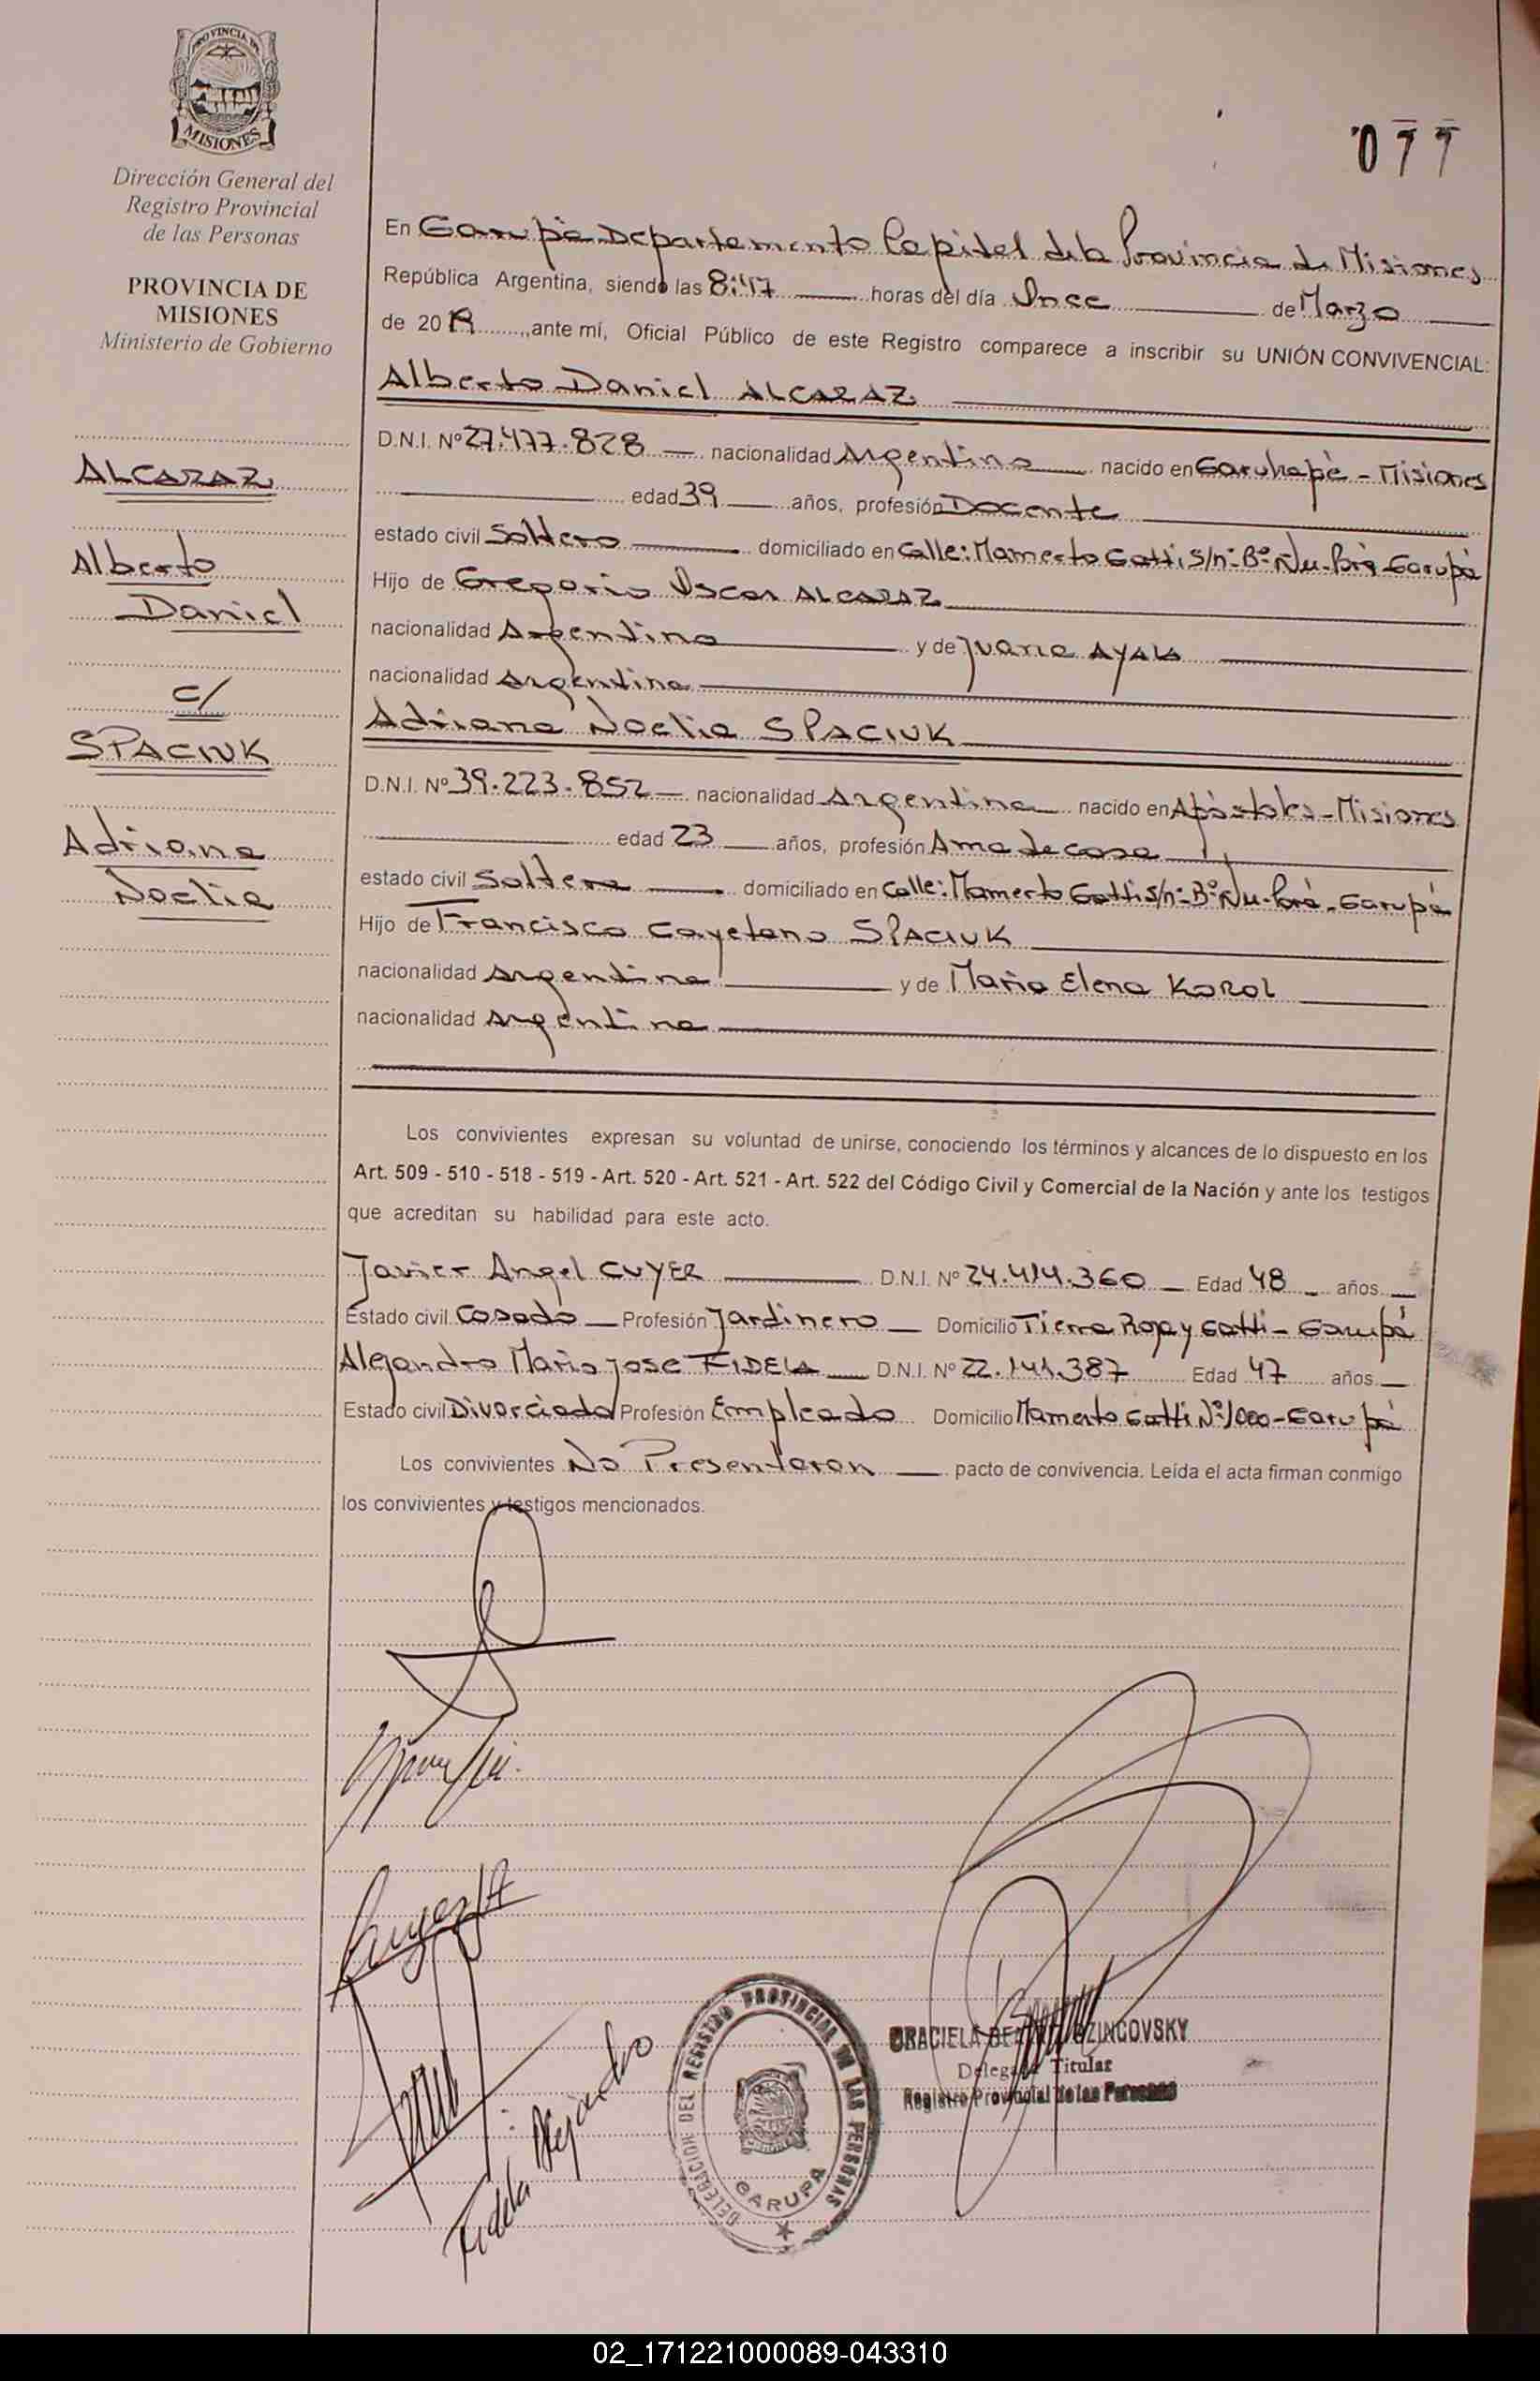 PROVINCIA DE
MISIONES
Dirección General del
Registro Provincial
de las Personas
PROVINCIA DE
MISIONES
Ministerio de Gobierno
ALCARAZ
Alberto
Daniel
c/
SPACIUK
Adriana
Noelia
077
En Garupá Departamento Capital de la Provincia de Misiones
República Argentina, siendo las 8:47 horas del día Once de Marzo
de 2019, ante mí, Oficial Público de este Registro comparece a inscribir su UNIÓN CONVIVENCIAL:
Alberto Daniel ALCARAZ
D.N.I. Nº 27.477.828 nacionalidad Argentina nacido en Garuhapé - Misiones
edad 39 años, profesión Docente
estado civil Soltero domiciliado en Calle: Mamerto Gatti s/nº Bº Ñu-Porá-Garupá
Hijo de Gregorio Oscar ALCARAZ
nacionalidad Argentina y de Juana AYALA
nacionalidad Argentina
Adriana Noelia SPACIUK
D.N.I. Nº 39.223.852 nacionalidad Argentina nacido en Apóstoles - Misiones
edad 23 años, profesión Ama de casa
estado civil Soltera domiciliado en Calle: Mamerto Gatti s/nº Bº Ñu-Porá-Garupá
Hijo de Francisco Cayetano SPACIUK
nacionalidad Argentina y de María Elena KOROL
nacionalidad Argentina
Los convivientes expresan su voluntad de unirse, conociendo los términos y alcances de lo dispuesto en los
Art. 509 - 510 - 518 - 519 - Art. 520 - Art. 521 - Art. 522 del Código Civil y Comercial de la Nación y ante los testigos
que acreditan su habilidad para este acto.
Javier Angel CUYER D.N.I. Nº 24.414.360 Edad 48 años
Estado civil Casado Profesión Jardinero Domicilio Tierra Roja y Gatti - Garupá
Alejandro Mario Jose FIDELA D.N.I. Nº 22.141.387 Edad 47 años
Estado civil Divorciado Profesión Empleado Domicilio Mamerto Gatti Nº 1000 - Garupá
Los convivientes No Presentaron pacto de convivencia. Leída el acta firman conmigo
los convivientes y testigos mencionados.
Fidela Alejandro
DELEGACION DEL REGISTRO PROVINCIAL DE LAS PERSONAS
GARUPA
GRACIELA
Delegada Titular
Registro Provincial de las Personas
02_171221000089-043310